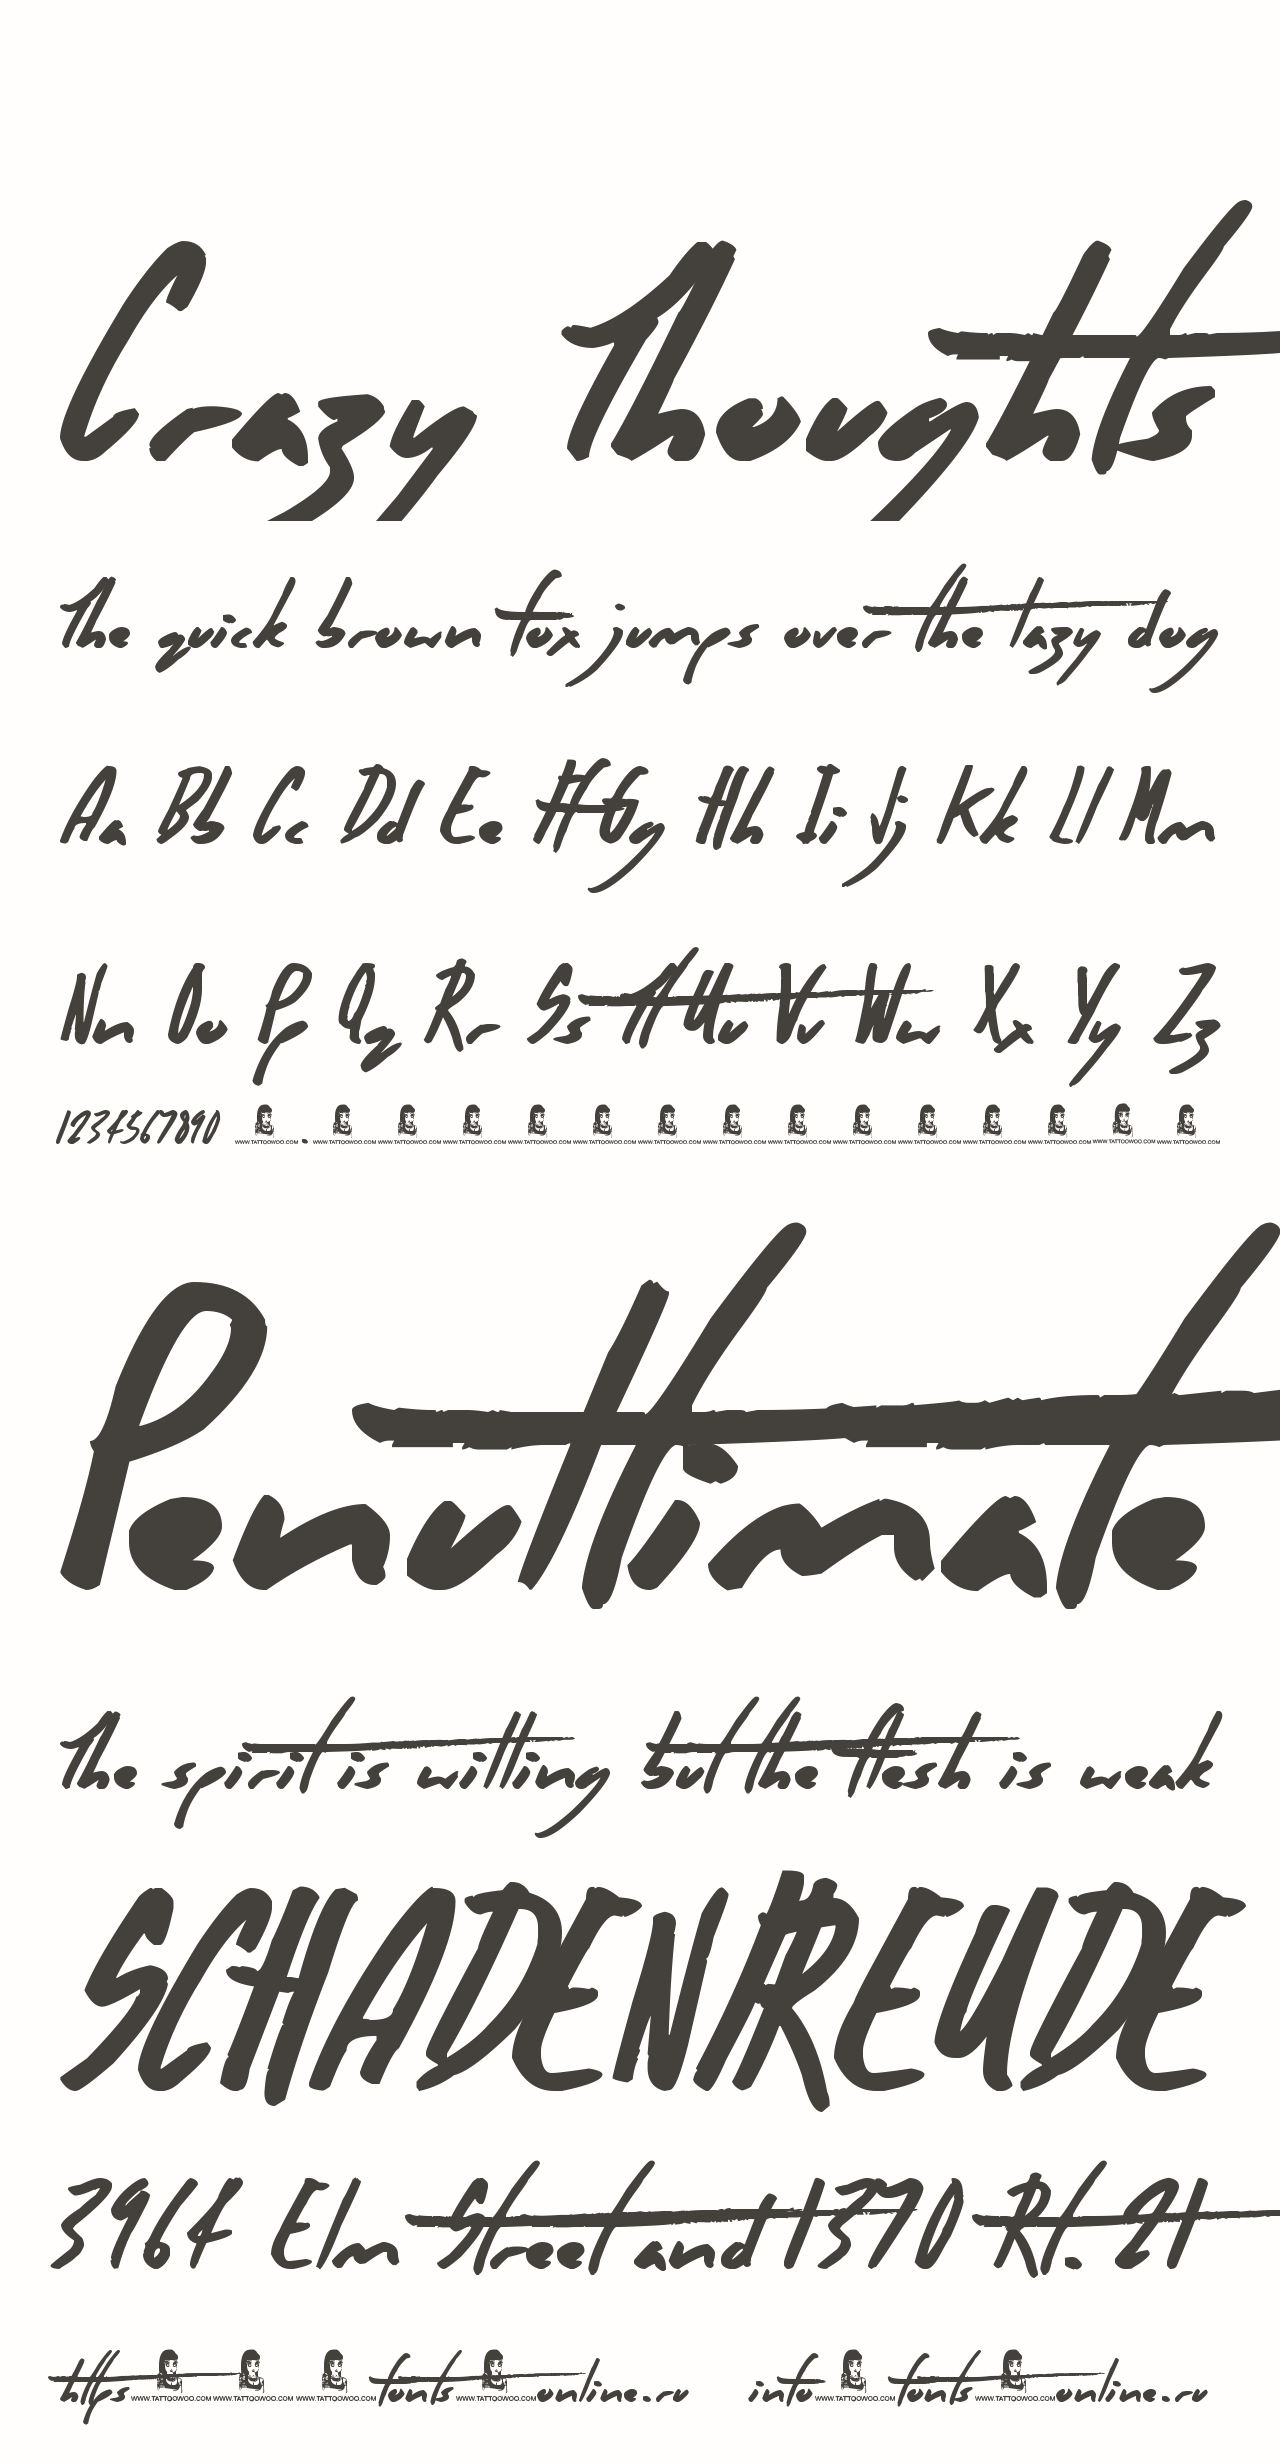 Crazy Thoughts
The quick brown fox jumps over the lazy dog
Aa Bb Cc Dd Ee Ff Gg Hh Ii Jj Kk Ll Mm
Nn Oo Pp Qq Rr Ss Tt Uu Vv Ww Xx Yy Zz
1234567890 WWW.TATTOOWOO.COM . WWW.TATTOOWOO.COM WWW.TATTOOWOO.COM WWW.TATTOOWOO.COM WWW.TATTOOWOO.COM WWW.TATTOOWOO.COM WWW.TATTOOWOO.COM WWW.TATTOOWOO.COM WWW.TATTOOWOO.COM WWW.TATTOOWOO.COM WWW.TATTOOWOO.COM WWW.TATTOOWOO.COM WWW.TATTOOWOO.COM WWW.TATTOOWOO.COM WWW.TATTOOWOO.COM
Penultimate
The spirit is willing but the flesh is weak
SCHADENFREUDE
3964 Elm Street and 1370 Rt. 21
https WWW.TATTOOWOO.COM WWW.TATTOOWOO.COM WWW.TATTOOWOO.COM fonts WWW.TATTOOWOO.COM online.ru info WWW.TATTOOWOO.COM fonts WWW.TATTOOWOO.COM online.ru